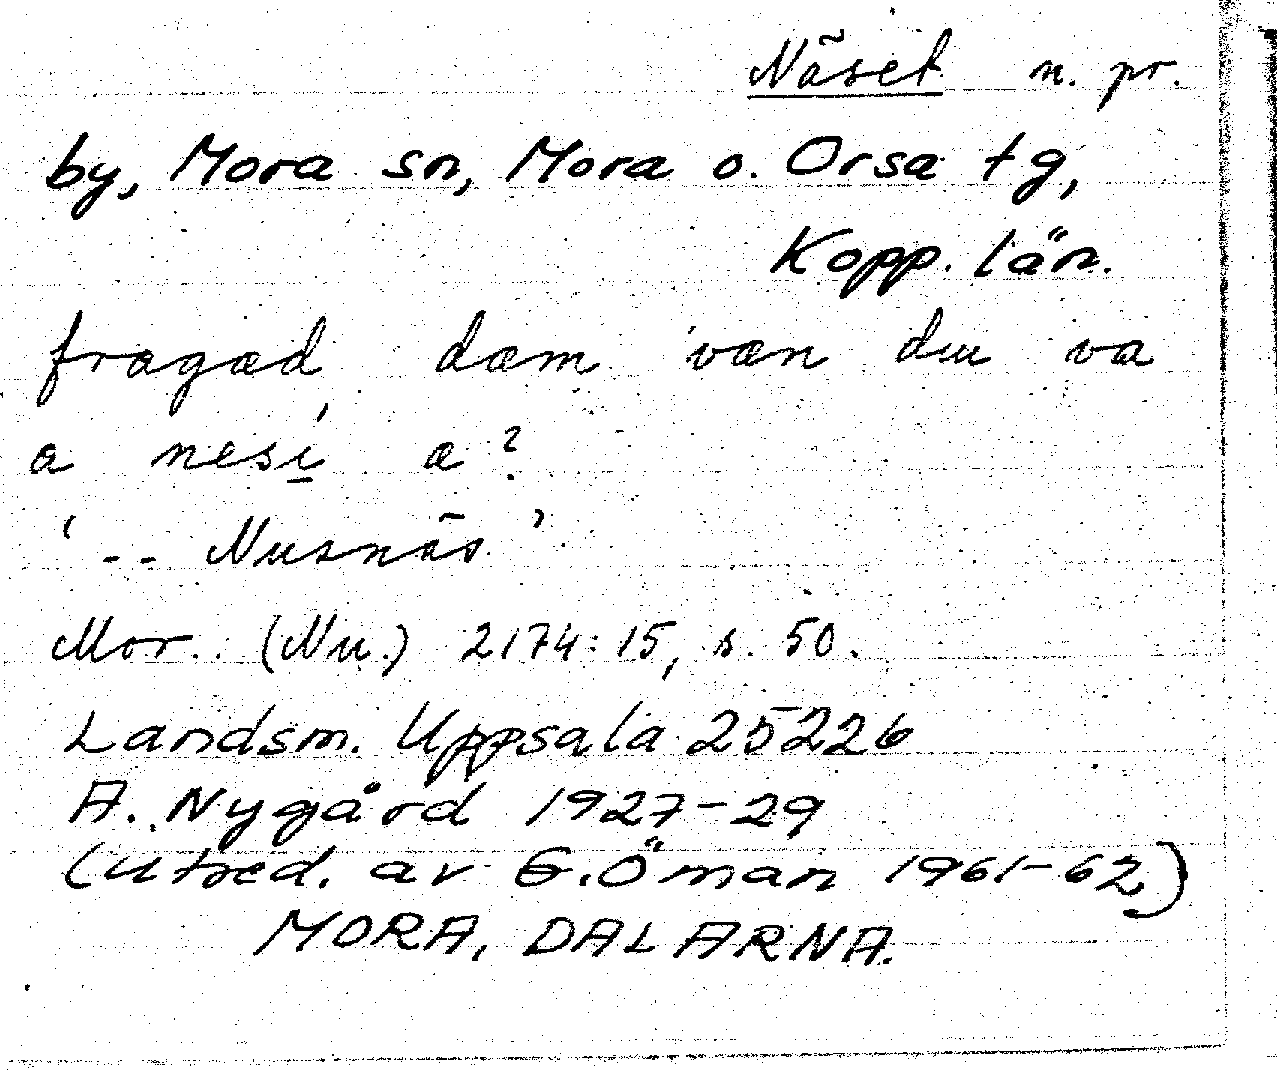 Näset n. pr.
by, Mora sn, Mora o. Orsa tg,
Kopp. län.
fragæd dæm væn du va
a nesi æ?
' -- Nusnäs '
Mor. (Nu.) 2174:15, s. 50.
Landsm. Uppsala 25226
A. Nygård 1927-29
(utred. av G. Öman 1961-62)
MORA, DALARNA.